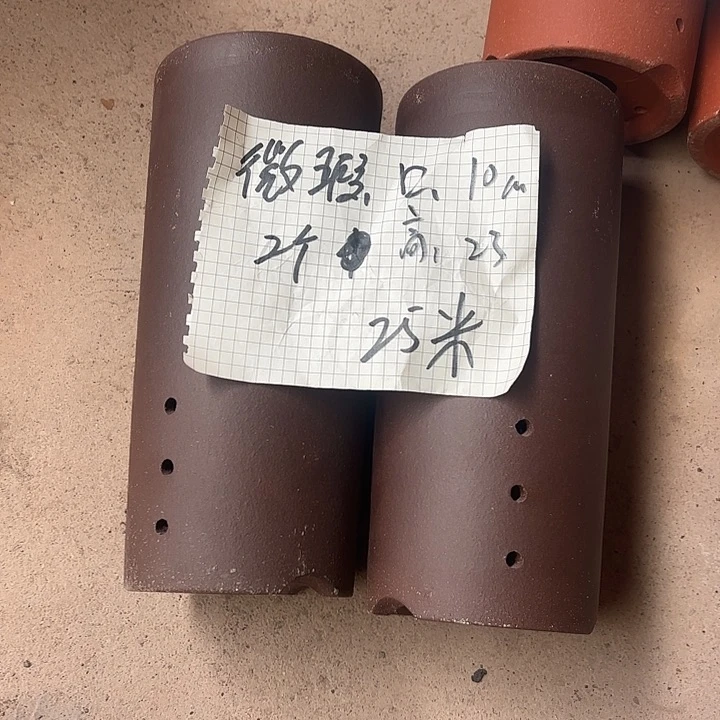 微瑕 口 10cm
2个 高 23
25米